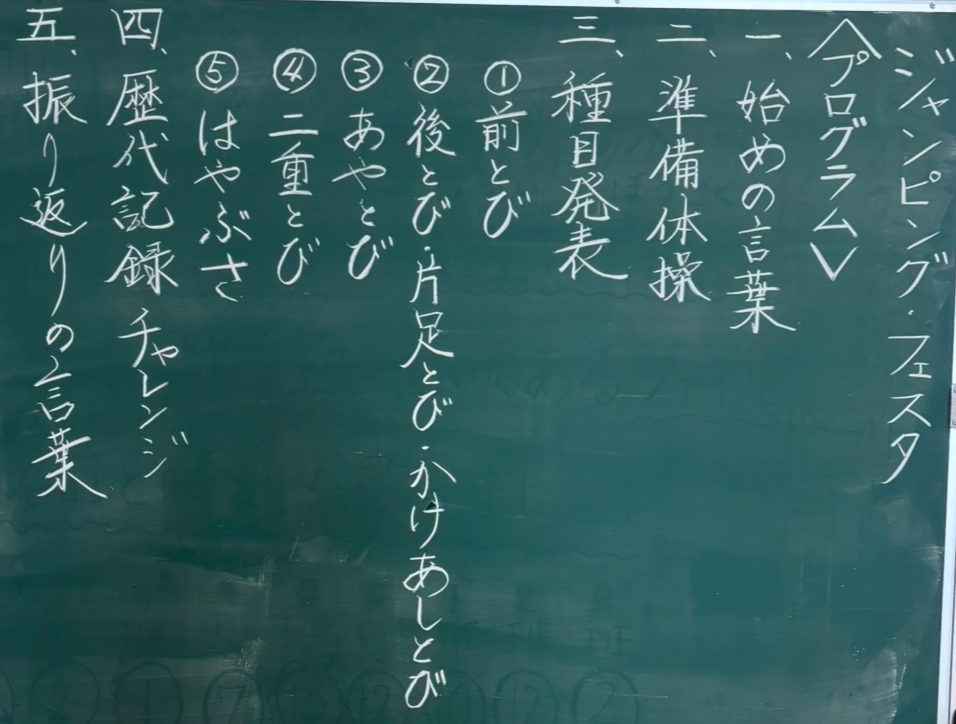 ジャンピング・フェスタ
〈プログラム〉
一、始めの言葉
二、準備体操
三、種目発表
①前とび
②後とび・片足とび・かけあしとび
③あやとび
④二重とび
⑤はやぶさ
四、歴代記録チャレンジ
五、振り返りの言葉